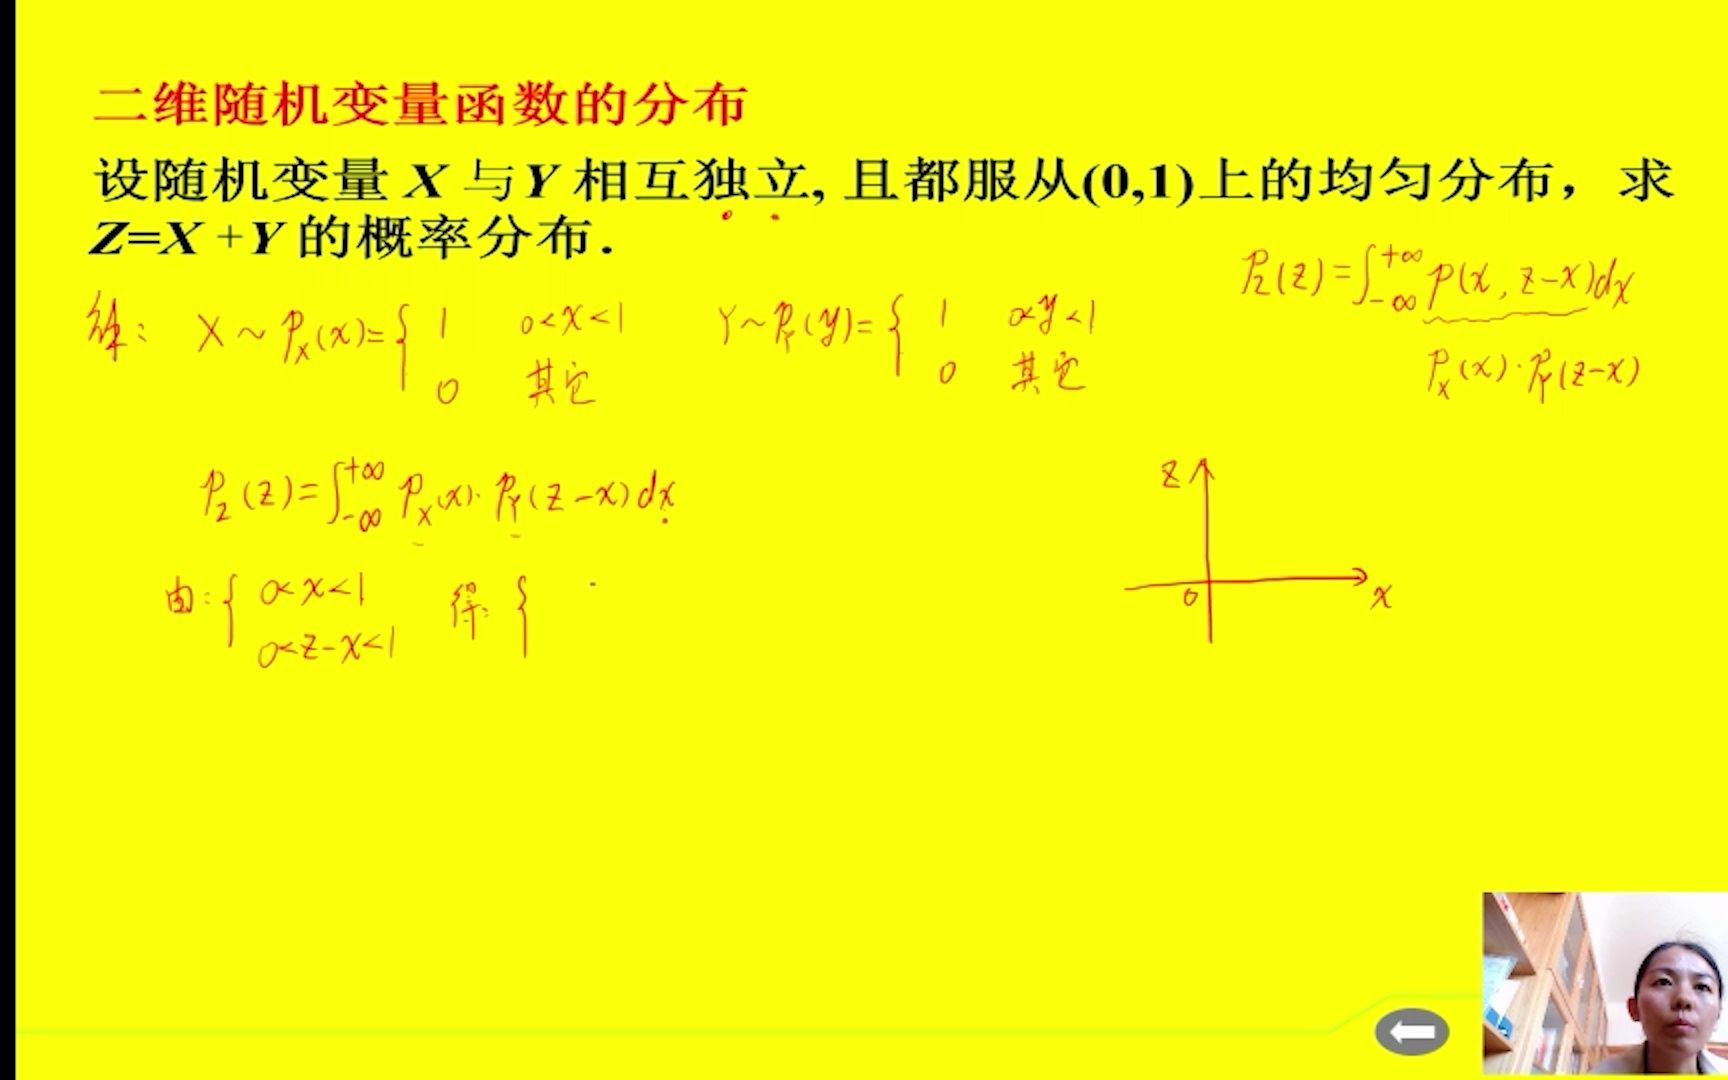 二维随机变量函数的分布
设随机变量 X 与 Y 相互独立, 且都服从(0,1)上的均匀分布，求
Z=X+Y 的概率分布.
P_Z(z)=∫_{-∞}^{+∞} P(x, z-x)dx
P_X(x)·P_Y(z-x)
解: X~P_X(x)={ 1 0<x<1 Y~P_Y(y)={ 1 0<y<1
0 其它 0 其它
P_Z(z)=∫_{-∞}^{+∞} P_X(x)·P_Y(z-x)dx
由:{ 0<x<1 得:{
0<z-x<1
z
0
x